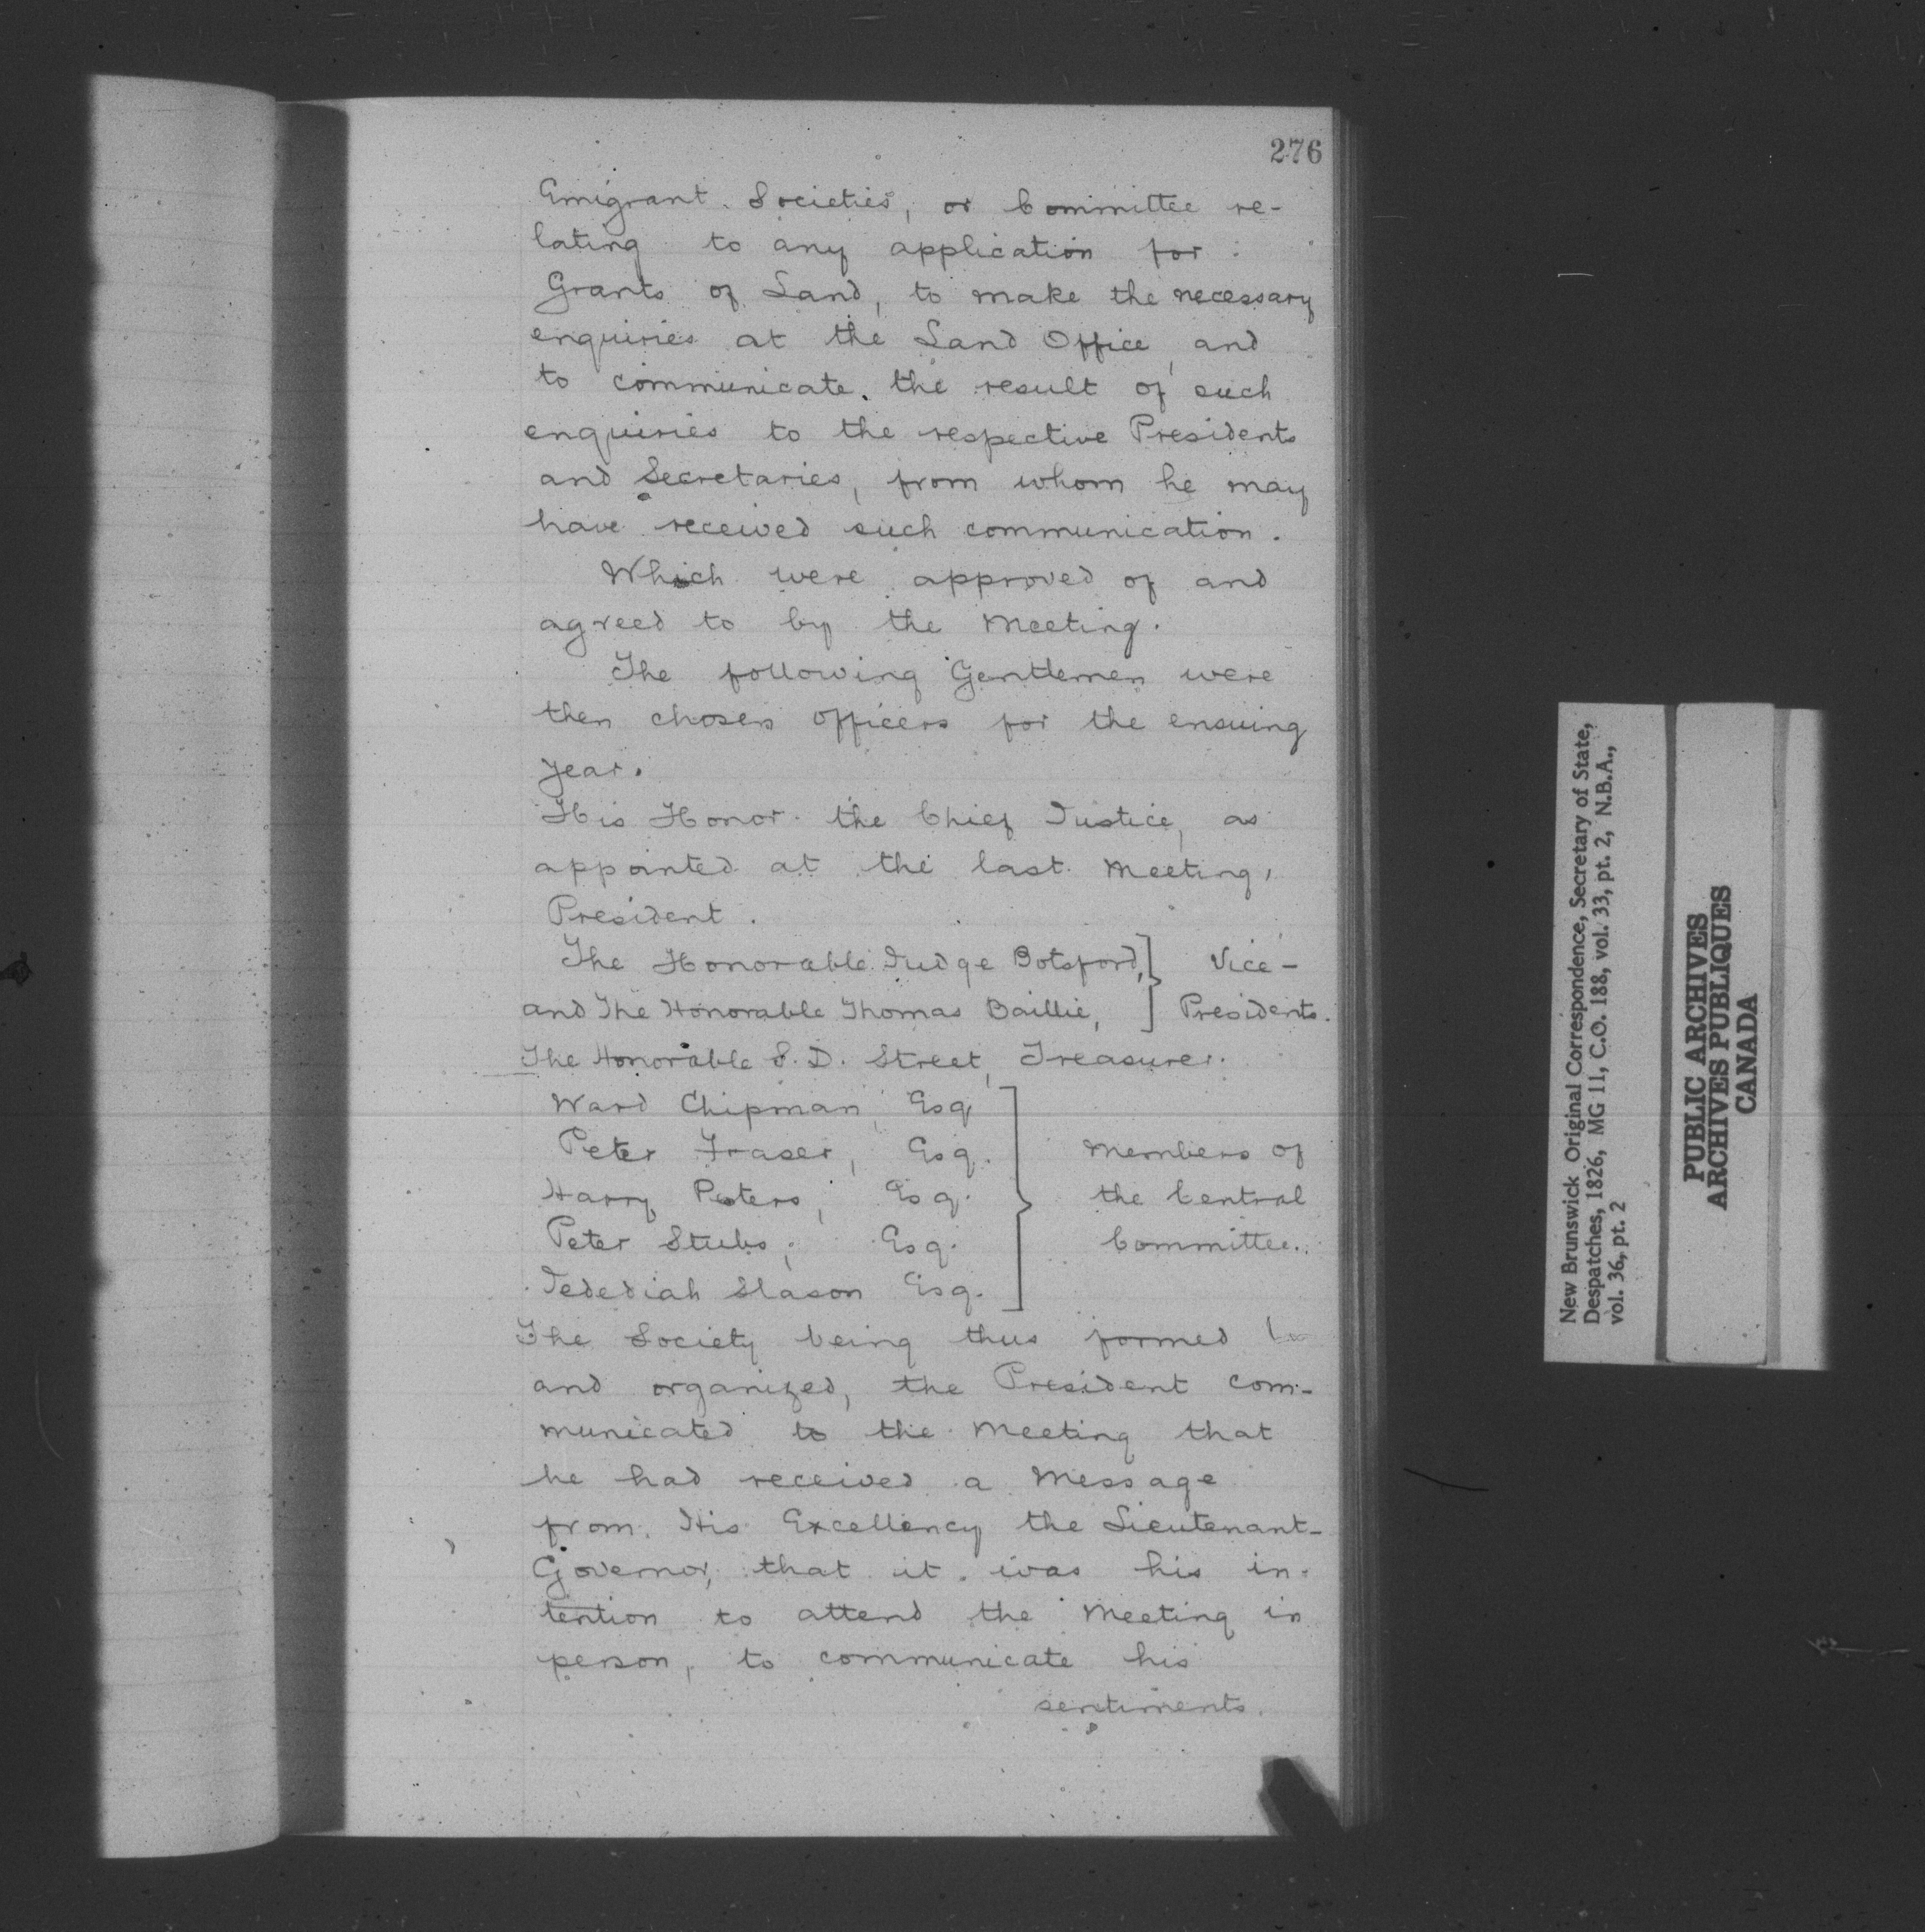 276
Emigrant Societies, or Committee re-
lating to any application for
Grants of Land, to make the necessary
enquiries at the Land Office, and
to communicate the result of such
enquiries to the respective Presidents
and Secretaries, from whom he may
have received such communication.
Which were approved of and
agreed to by the Meeting.
The following Gentlemen were
then chosen officers for the ensuing
year.
His Honor the Chief Justice, as
appointed at the last Meeting,
President.
The Honorable Judge Botsford, Vice-
and The Honorable Thomas Baillie, Presidents.
The Honorable S. D. Street, Treasurer.
Ward Chipman, Esq
Peter Fraser, Esq. Members of
Harry Peters, Esq. the Central
Peter Stubs, Esq. Committee.
Jedediah Slason Esq.
The Society being thus formed
and organized, the President com-
municated to the Meeting that
he had received a Message
from His Excellency the Lieutenant-
Governor, that it was his in-
tention to attend the Meeting in
person, to communicate his
sentiments.
New Brunswick Original Correspondence, Secretary of State,
Despatches, 1826, MG 11, C.O. 188, vol. 33, pt. 2, N.B.A.,
vol. 36, pt. 2
PUBLIC ARCHIVES
ARCHIVES PUBLIQUES
CANADA